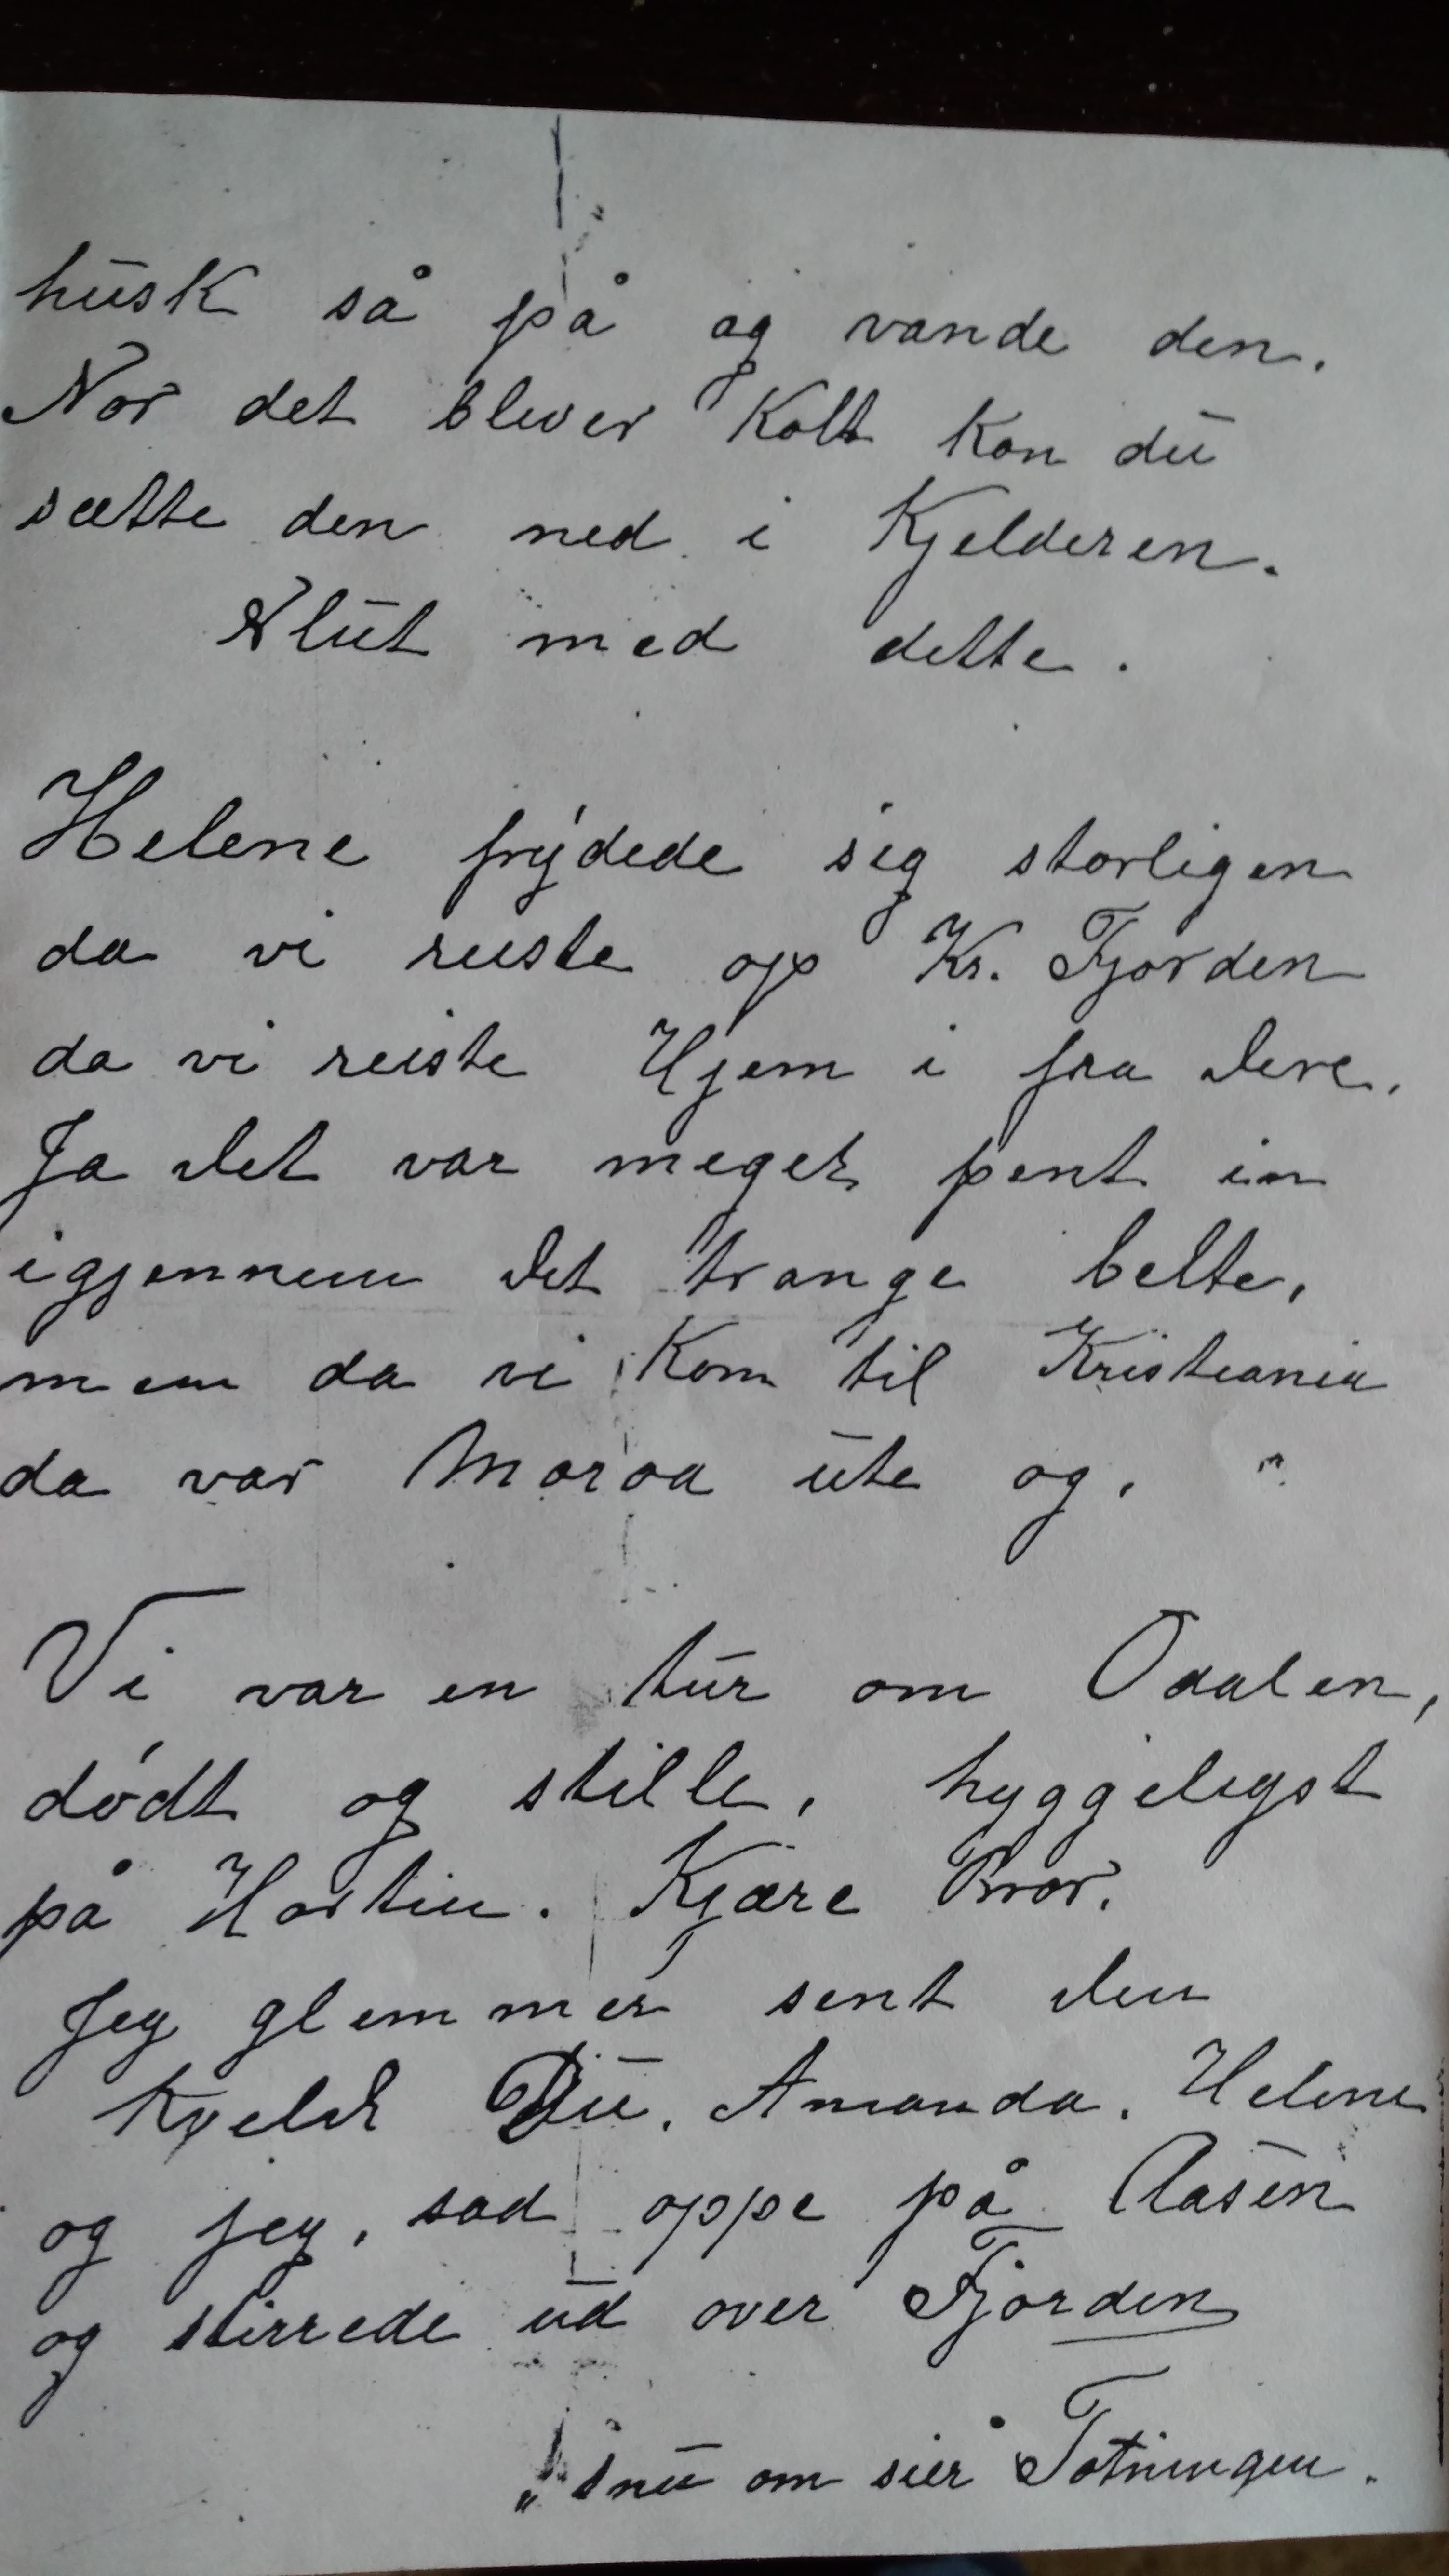 husk så på og vande den.
Nor det blever Kolt Kan du
sætte den ned i Kjelderen.
Slut med dette.
Helene frydede sig storligen
da vi reiste op Kr. Fjorden
da vi reiste Hjem i fra Dere.
Ja Det var meget pent in
igjennem Det trange belte,
men da vi Kom til Kristiania
da var Moroa ute og.
Vi var en tur om Odalen,
dødt og stille, hyggeligst
på Kjære Bror.
Jeg glemmer sent Den
Kveld Du, Amanda, Helene
og jeg, sad oppe på Aasen
og stirrede ud over Fjorden
„snu om sier Totningen.